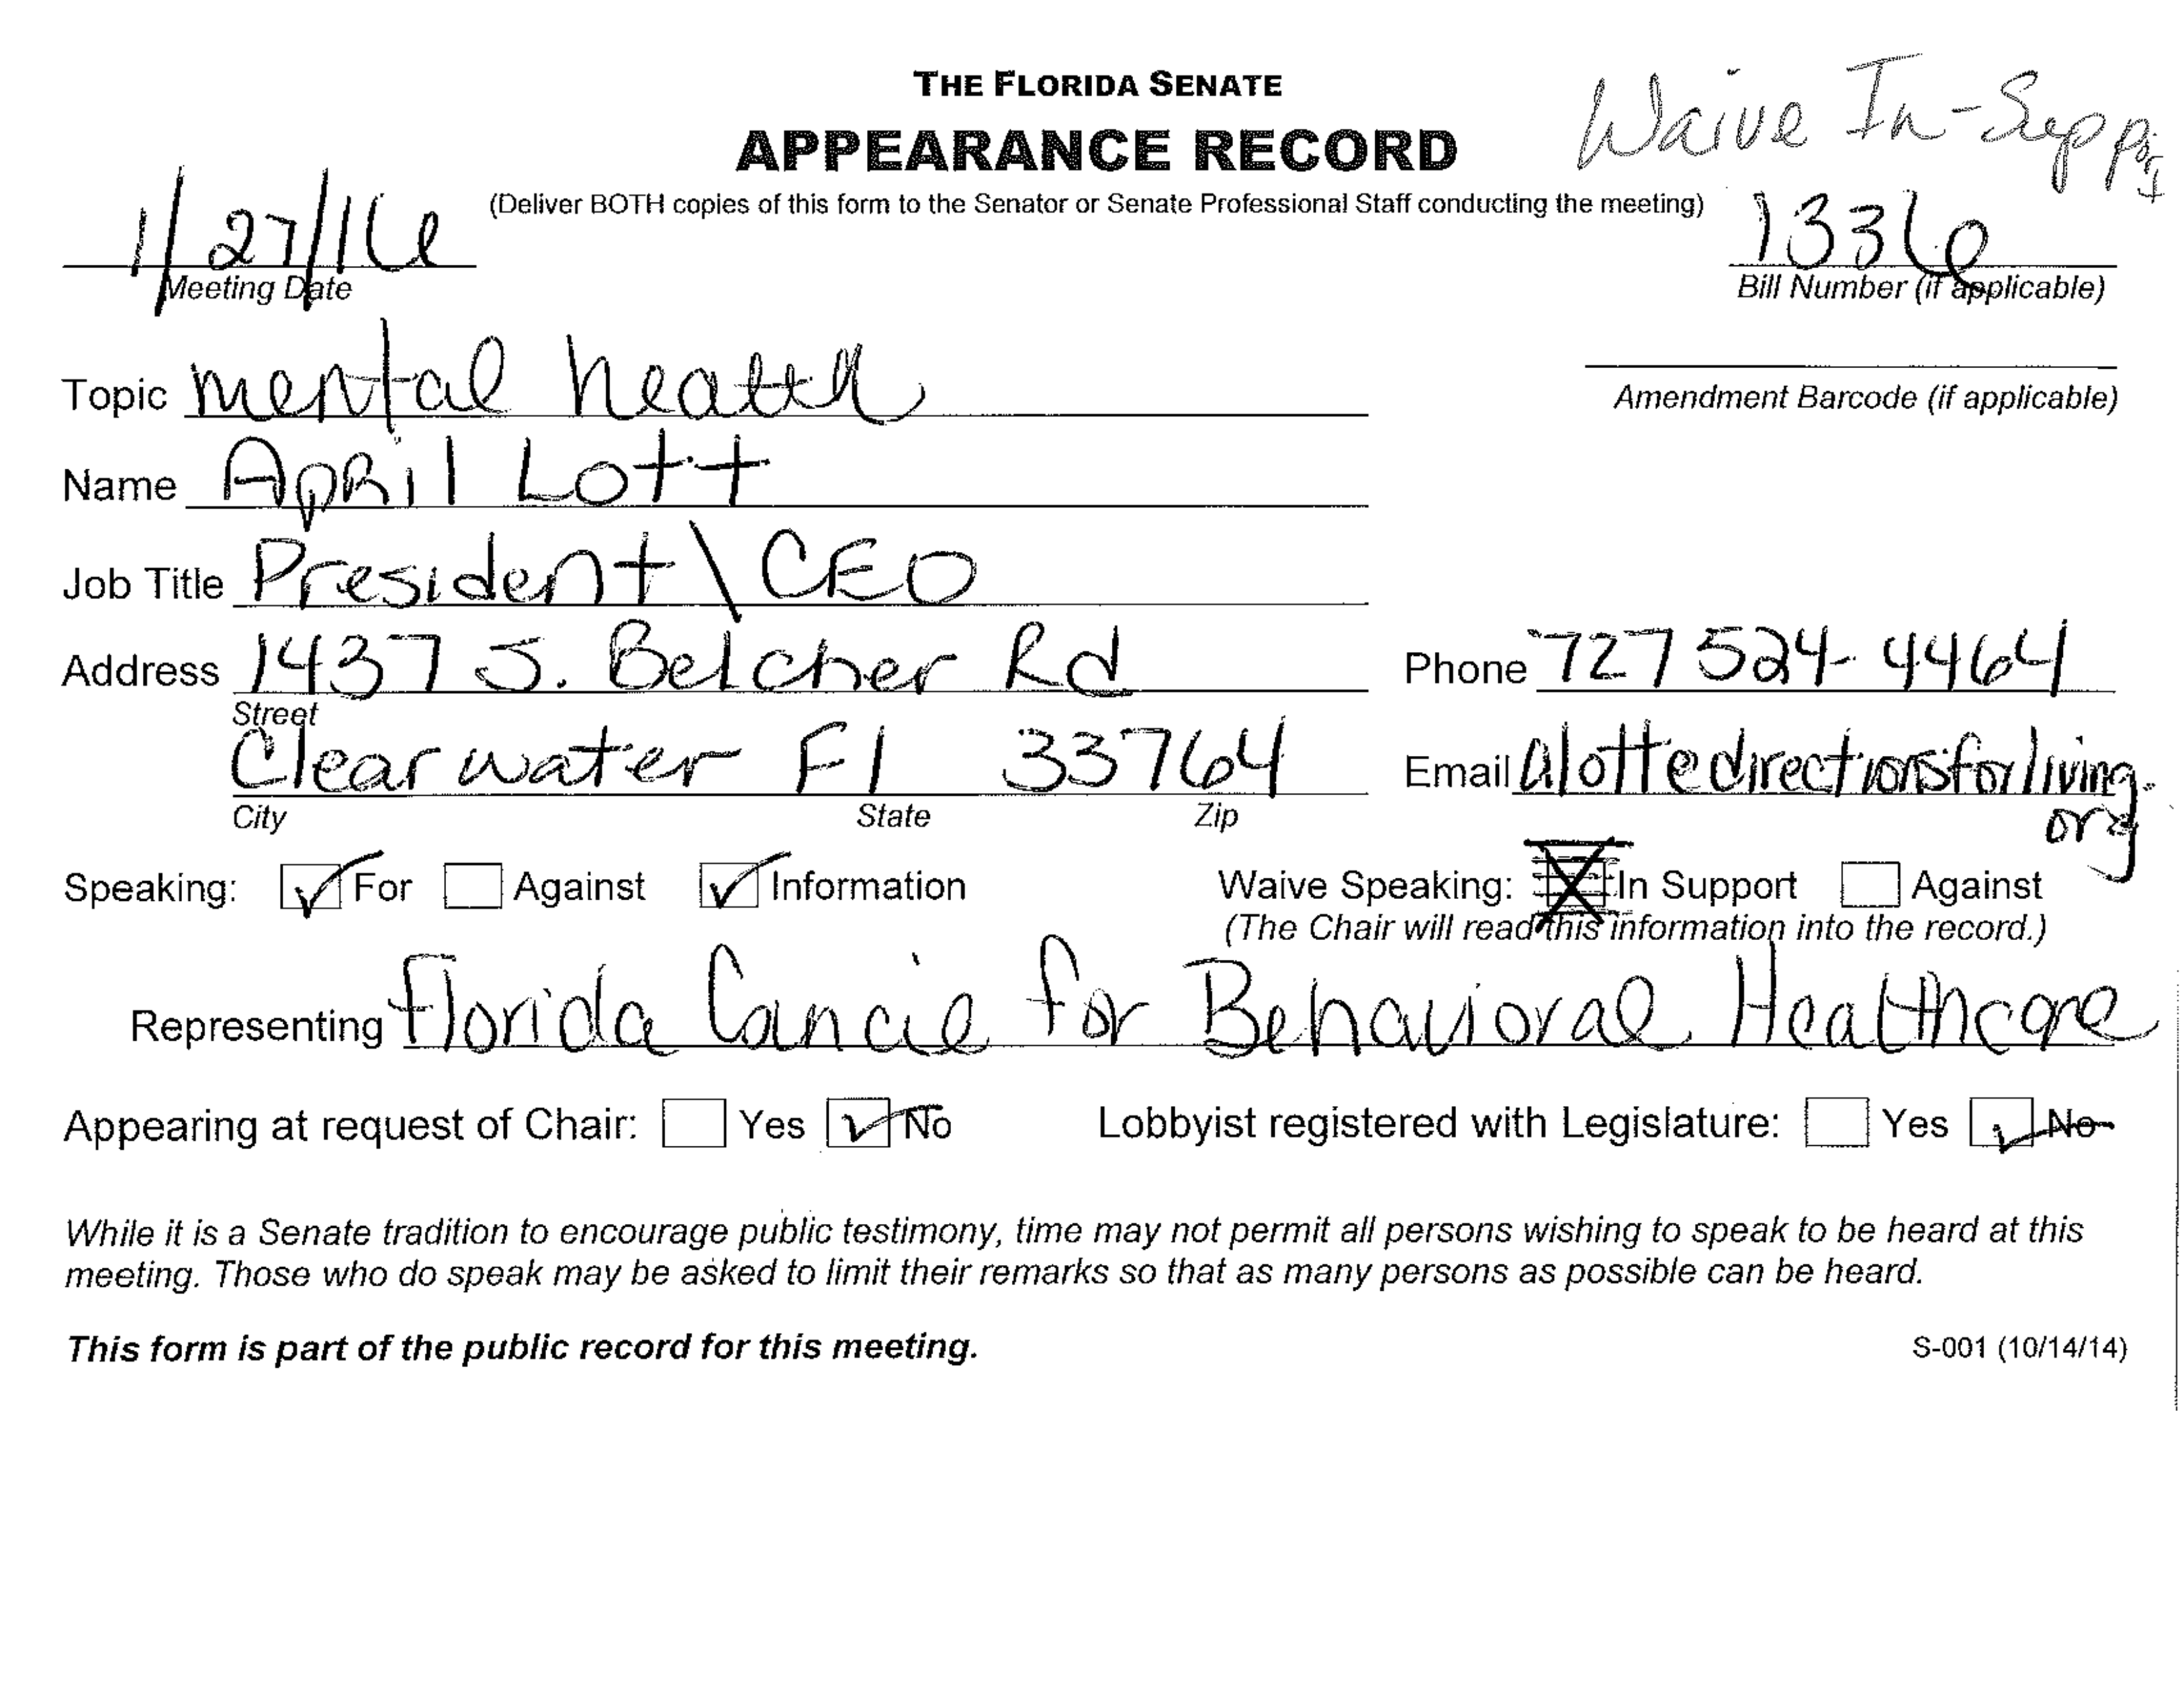 THE FLORIDA SENATE
Waive In-Support
APPEARANCE RECORD
(Deliver BOTH copies of this form to the Senator or Senate Professional Staff conducting the meeting)
1/27/16
1336
Meeting Date
Bill Number (if applicable)
Topic mental health
Amendment Barcode (if applicable)
Name April Lott
Job Title President\CEO
Address 1437 S. Belcher Rd Phone 727 524-4464
Street
Clearwater Fl 33764 Email alott@directionsforliving.
org
City State Zip
Speaking: For Against Information Waive Speaking: In Support Against
(The Chair will read this information into the record.)
Representing Florida Concil for Behavioral Healthcare
Appearing at request of Chair: Yes No Lobbyist registered with Legislature: Yes No
While it is a Senate tradition to encourage public testimony, time may not permit all persons wishing to speak to be heard at this
meeting. Those who do speak may be asked to limit their remarks so that as many persons as possible can be heard.
This form is part of the public record for this meeting. S-001 (10/14/14)